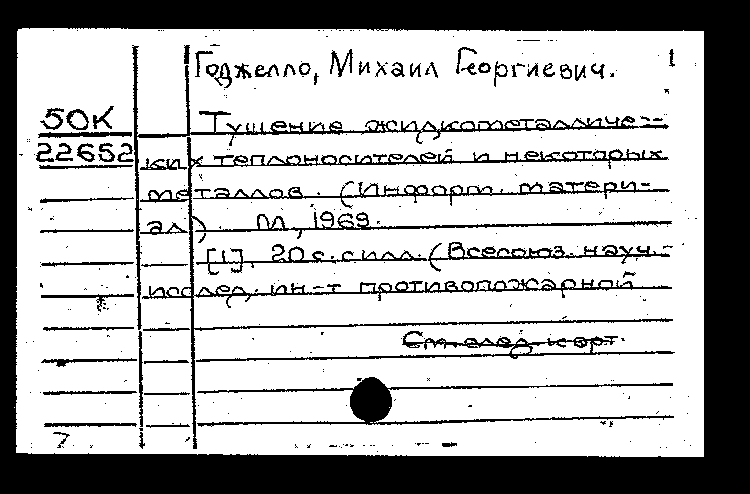 Годжелло, Михаил Георгиевич. 1
50К Тушение жидкометалличес-
22652 ких теплоносителей и некоторых
металлов. (Информ. матери-
ал) М., 1969.
[1], 20 с. с илл. (Всесоюз. науч.-
исслед. ин-т противопожарной
См. след. карт.
7